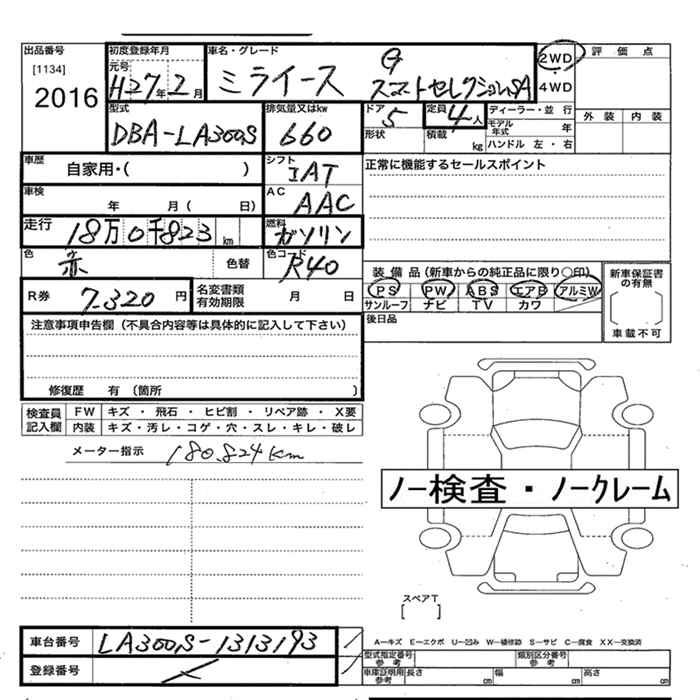 出品番号 初度登録年月 車名・グレード 2WD 評価点
[1134] 元号 G
2016 H27年2月 ミライース スマートセレクションSA ・4WD
型式 排気量又はkw ドア 定員 ディーラー・並行 外装 内装
DBA-LA300S 660 5 4人 モデル年式 年
形状 積載 kg ハンドル 左・右
車歴 自家用・( ) シフト IAT 正常に機能するセールスポイント
車検 年 月( 日) AC AAC
走行 18万0千823km 燃料 ガソリン
色 赤 色替 色コード R40 装備品(新車からの純正品に限り○印) 新車保証書の有無
R券 7,320円 名変書類有効期限 月 日 PS PW ABS エアB アルミW
サンルーフ ナビ TV カワ
注意事項申告欄(不具合内容等は具体的に記入して下さい) 後日品 車載不可
修復歴 有(箇所 )
検査員記入欄 FW キズ・飛石・ヒビ割・リペア跡・X要
内装 キズ・汚レ・コゲ・穴・スレ・キレ・破レ
メーター指示 180,824km
ノー検査・ノークレーム
スペアT
[ ]
車台番号 LA300S-1313193 A-キズ E-エクボ U-凹み W-補修跡 S-サビ C-腐食 XX-交換済
登録番号 型式指定番号 参考 類別区分番号 参考
車庫証明用 参考 長さ cm 幅 cm 高さ cm